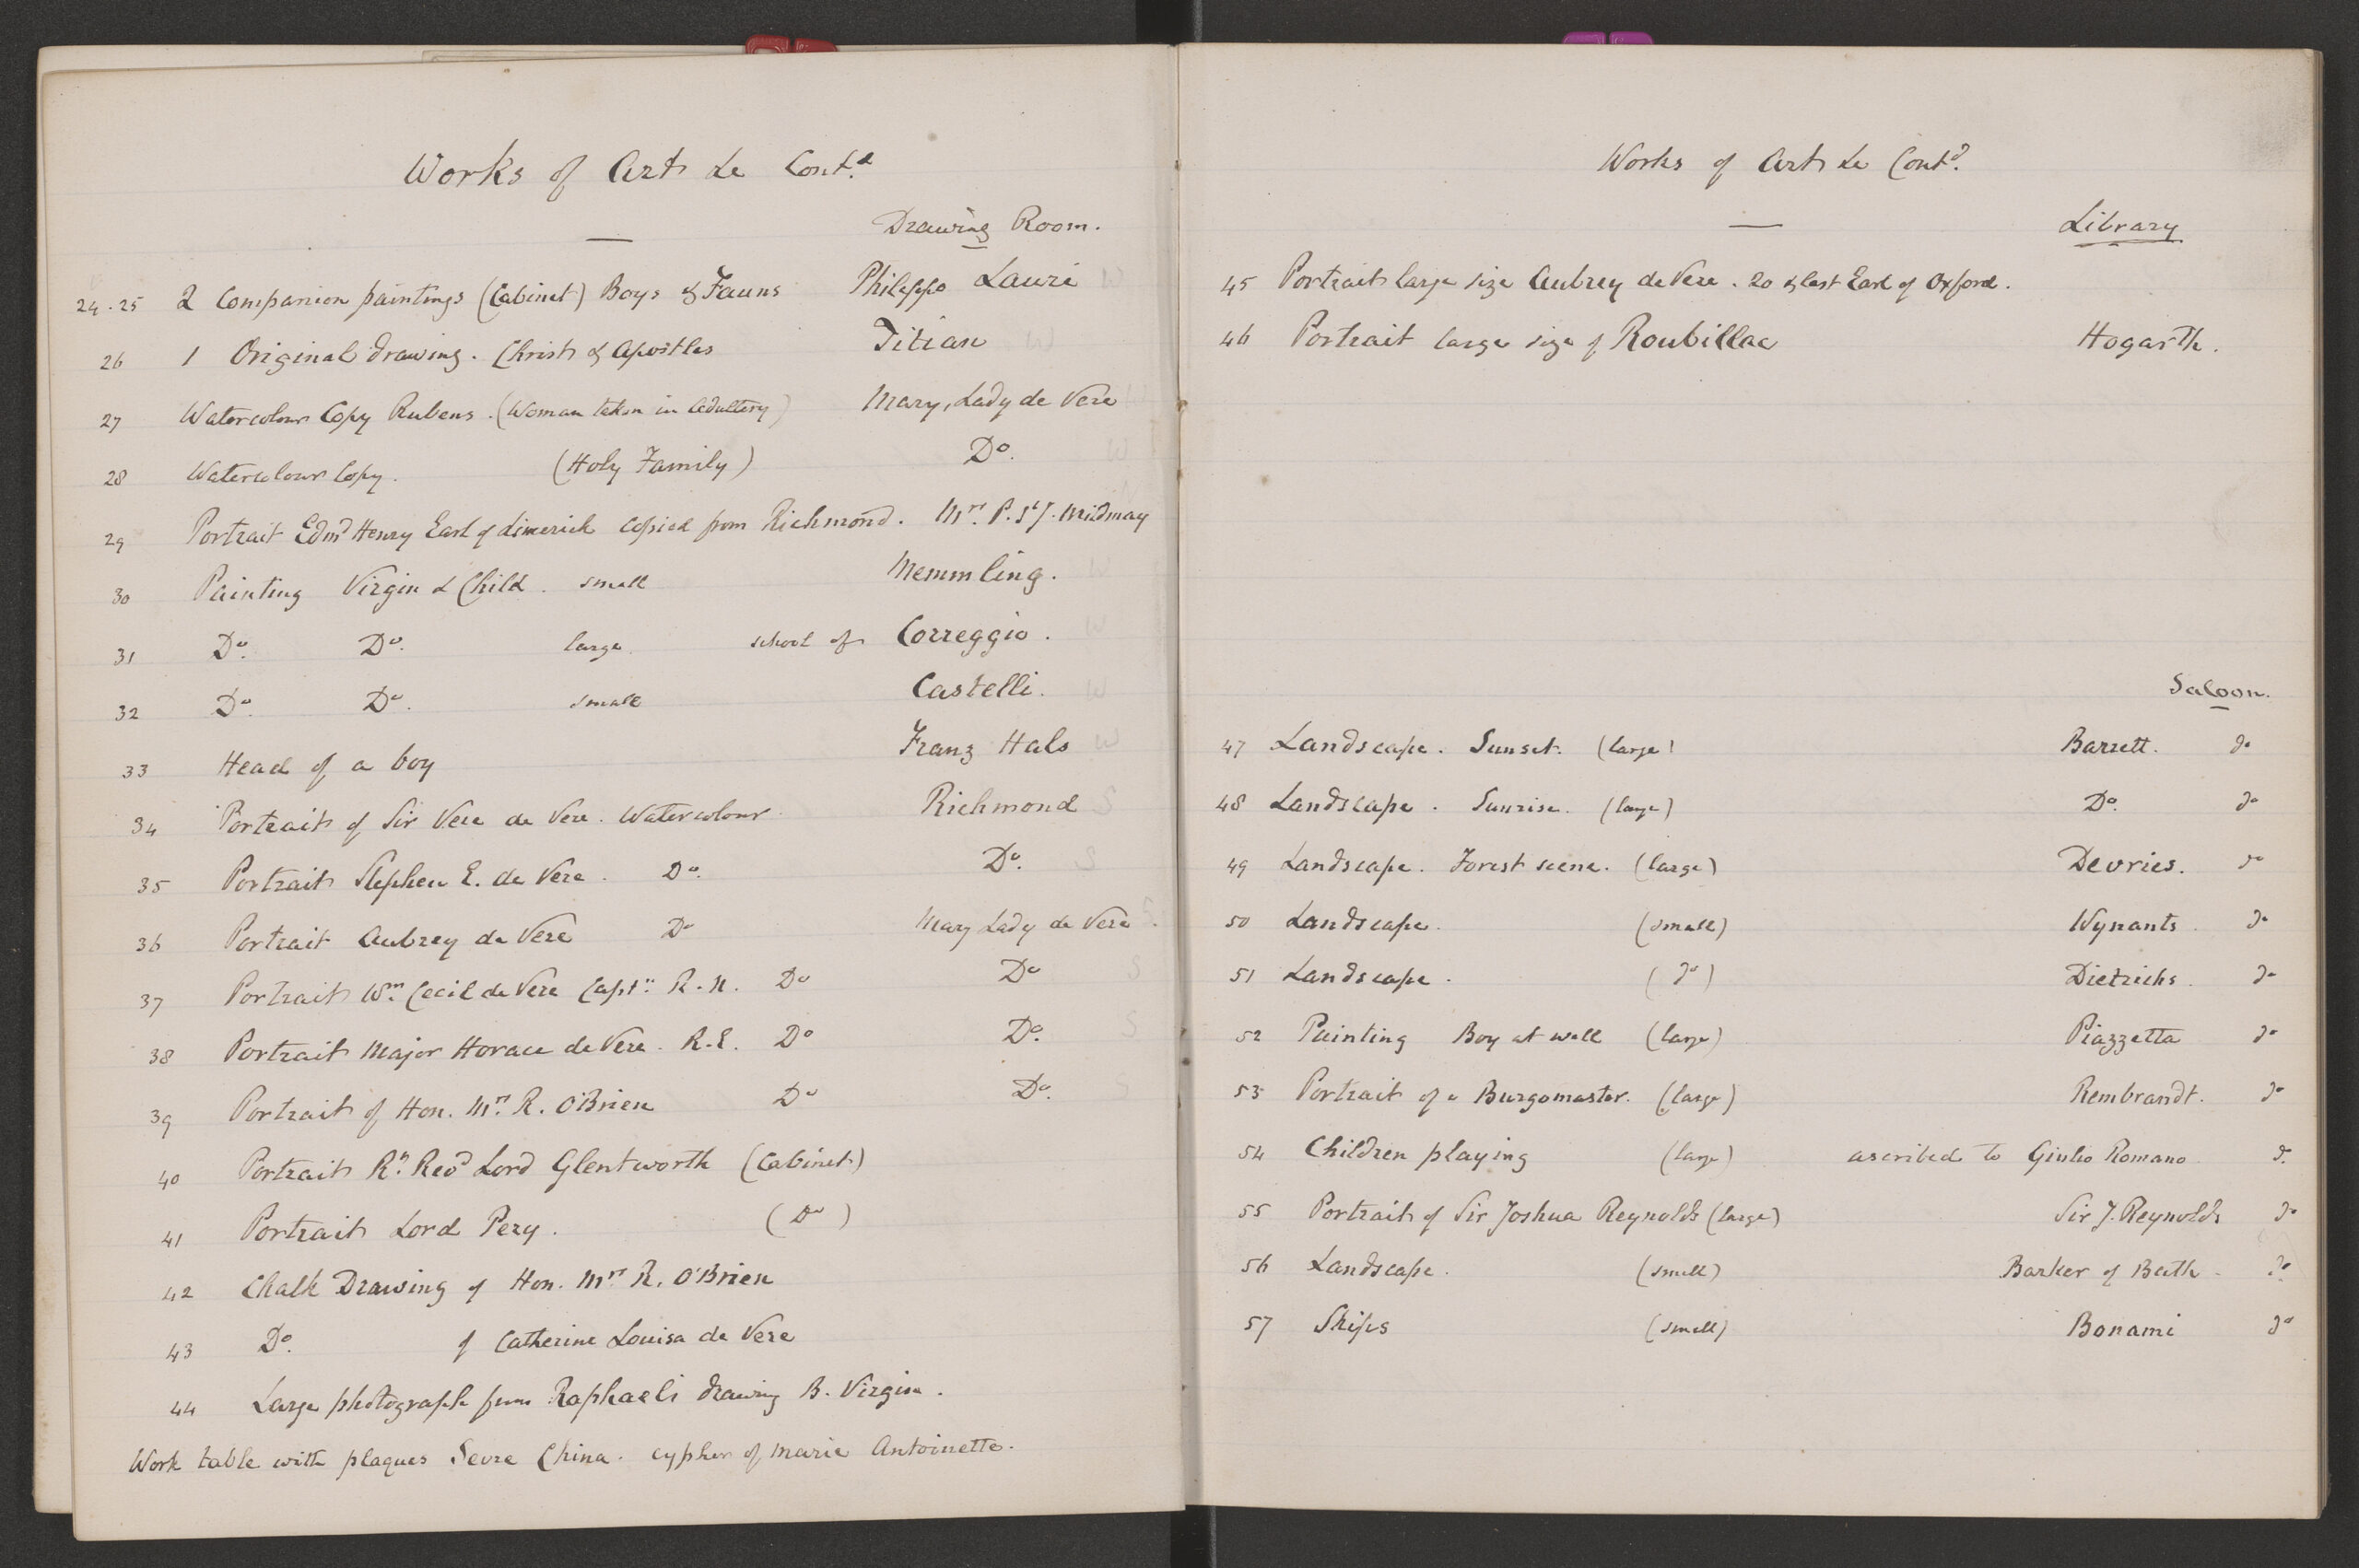 Works of Art &c Contd
Drawing Room.
24.25 2 Companion paintings (Cabinet) Boys & Fauns Philippo Lauri W
26 1 Original Drawing. Christ & Apostles Titian W
27 Watercolour Copy Rubens. (Woman taken in Adultery) Mary, Lady de Vere
28 Watercolour Copy. (Holy Family) Do. W
29 Portrait Edmd Henry Earl of Limerick copied from Richmond. Mrs. P. St J. Mildmay
30 Painting Virgin & Child. small Memmling. W
31 Do. Do. large school of Correggio. W
32 Do. Do. small Castelli. W
33 Head of a boy Franz Hals W
34 Portrait of Sir Vere de Vere. Watercolour Richmond S
35 Portrait Stephen E. de Vere. Do. Do. S
36 Portrait Aubrey de Vere Do Mary Lady de Vere S.
37 Portrait Wm. Cecil de Vere Captn. R.N. Do Do S
38 Portrait Major Horace de Vere. R.E. Do Do. S
39 Portrait of Hon. Mrs. R. O'Brien Do Do. S
40 Portrait Rt. Revd Lord Glentworth (Cabinet)
41 Portrait Lord Pery. (Do)
42 Chalk Drawing of Hon. Mrs R. O'Brien
43 Do. of Catherine Louisa de Vere
44 Large photograph from Raphaeli drawing B. Virgin.
Work table with plaques Sevre China. cypher of Marie Antoinette.
Works of Art &c Contd.
Library
45 Portrait large size Aubrey de Vere. 20 & last Earl of Oxford.
46 Portrait large size of Roubillac Hogarth.
Saloon.
47 Landscape. Sunset. (large) Barrett. do
48 Landscape. Sunrise. (large) Do. do
49 Landscape. Forest scene. (large) Devries. do
50 Landscape. (small) Wynants. do
51 Landscape. (do) Dietrichs. do
52 Painting Boy at well (large) Piazzetta do
53 Portrait of a Burgomaster. (large) Rembrandt. do
54 Children playing (large) ascribed to Giulio Romano do.
55 Portrait of Sir Joshua Reynolds (large) Sir J. Reynolds do
56 Landscape. (small) Barker of Bath. do
57 Ships (small) Bonami do